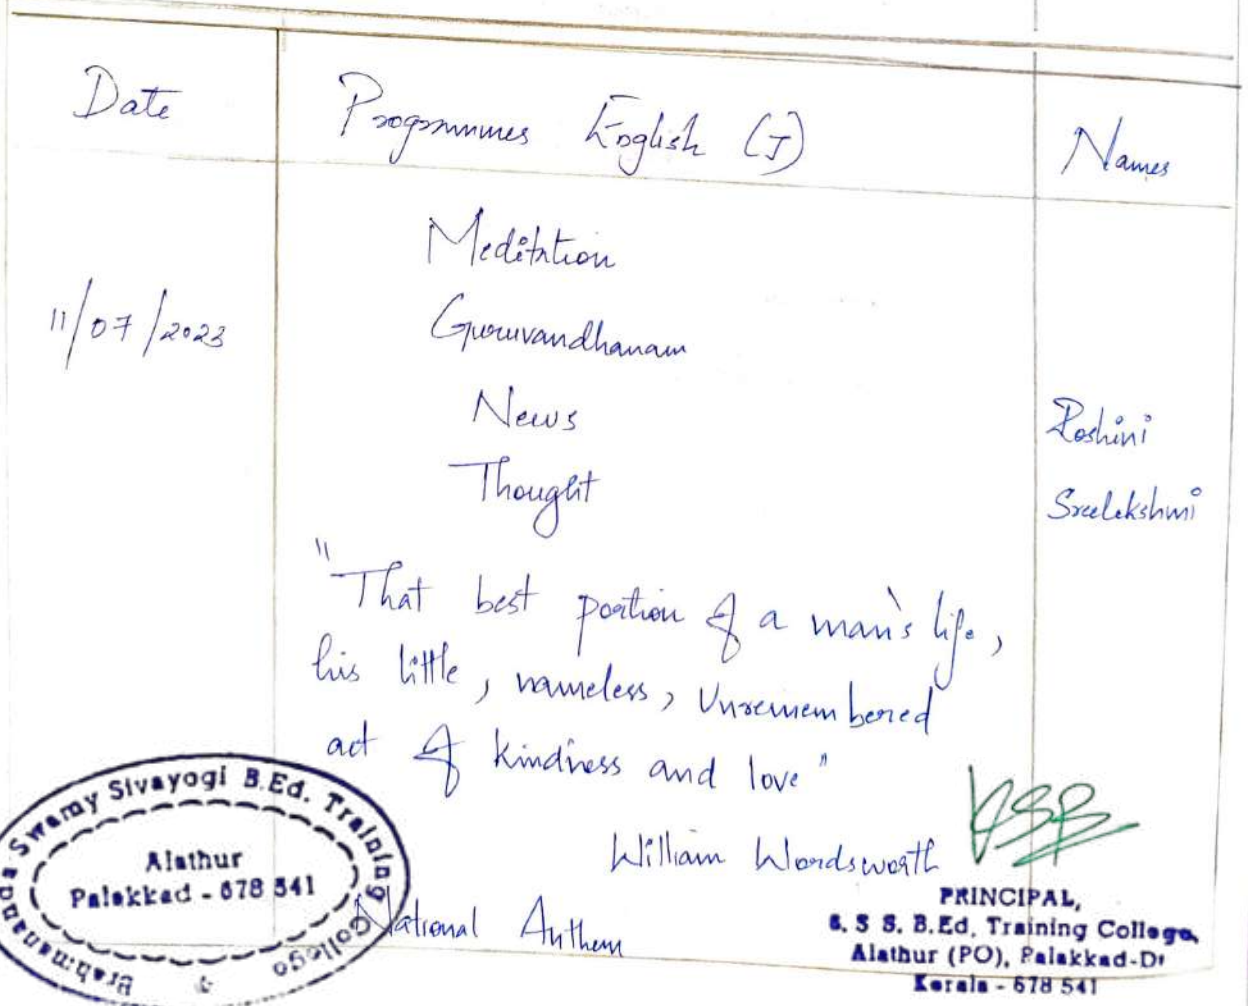 Date Programmes English (J) Names
Meditation
11/07/2023 Guruvandhanam
News Roshini
Thought Sreelekshmi
"That best portion of a man's life,
his little, nameless, Unremembered
act of kindness and love"
William Wordsworth
National Anthem
Brahmananda Swamy Sivayogi B.Ed. Training College
Alathur
Palakkad - 678 541
PRINCIPAL,
S. S S. B.Ed, Training College,
Alathur (PO), Palakkad-Dt
Kerala - 678 541